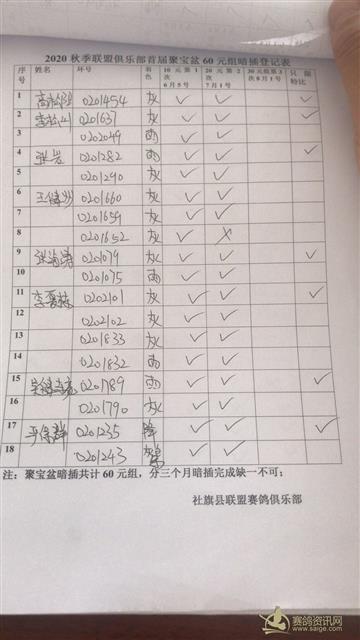 2020 秋季联盟俱乐部首届聚宝盆 60 元组暗插登记表
序号 姓名 环号 羽色 10 元第1次6月5号 20 元第2次7月1号 30元组第3次8月1号 只 鸽比
1 0201454 灰 ✓ ✓ ✓
2 0201637 灰 ✓ ✓ ✓
3 0202049 雨 ✓ ✓
4 张岩 0201282 雨 ✓ ✓ ✓
5 0201290 灰 ✓ ✓
6 0201660 灰 ✓ ✓
7 0201659 灰 ✓ ✓
8 0201652 灰 ✓ ✗
9 0201079 灰 ✓ ✓ ✓
10 0201075 雨 ✓ ✓
11 0202101 灰 ✓ ✓ ✓
12 0202102 灰 ✓ ✓
13 0201833 灰 ✓ ✓
14 0201832 雨 ✓ ✓
15 0201789 雨 ✓ ✓ ✓
16 0201790 灰 ✓ ✓
17 0201235 ✓ ✓ ✓
18 0201243 ✓ ✓
注：聚宝盆暗插共计 60 元组，分三个月暗插完成缺一不可；
社旗县联盟赛鸽俱乐部
赛鸽资讯网
www.saige.com